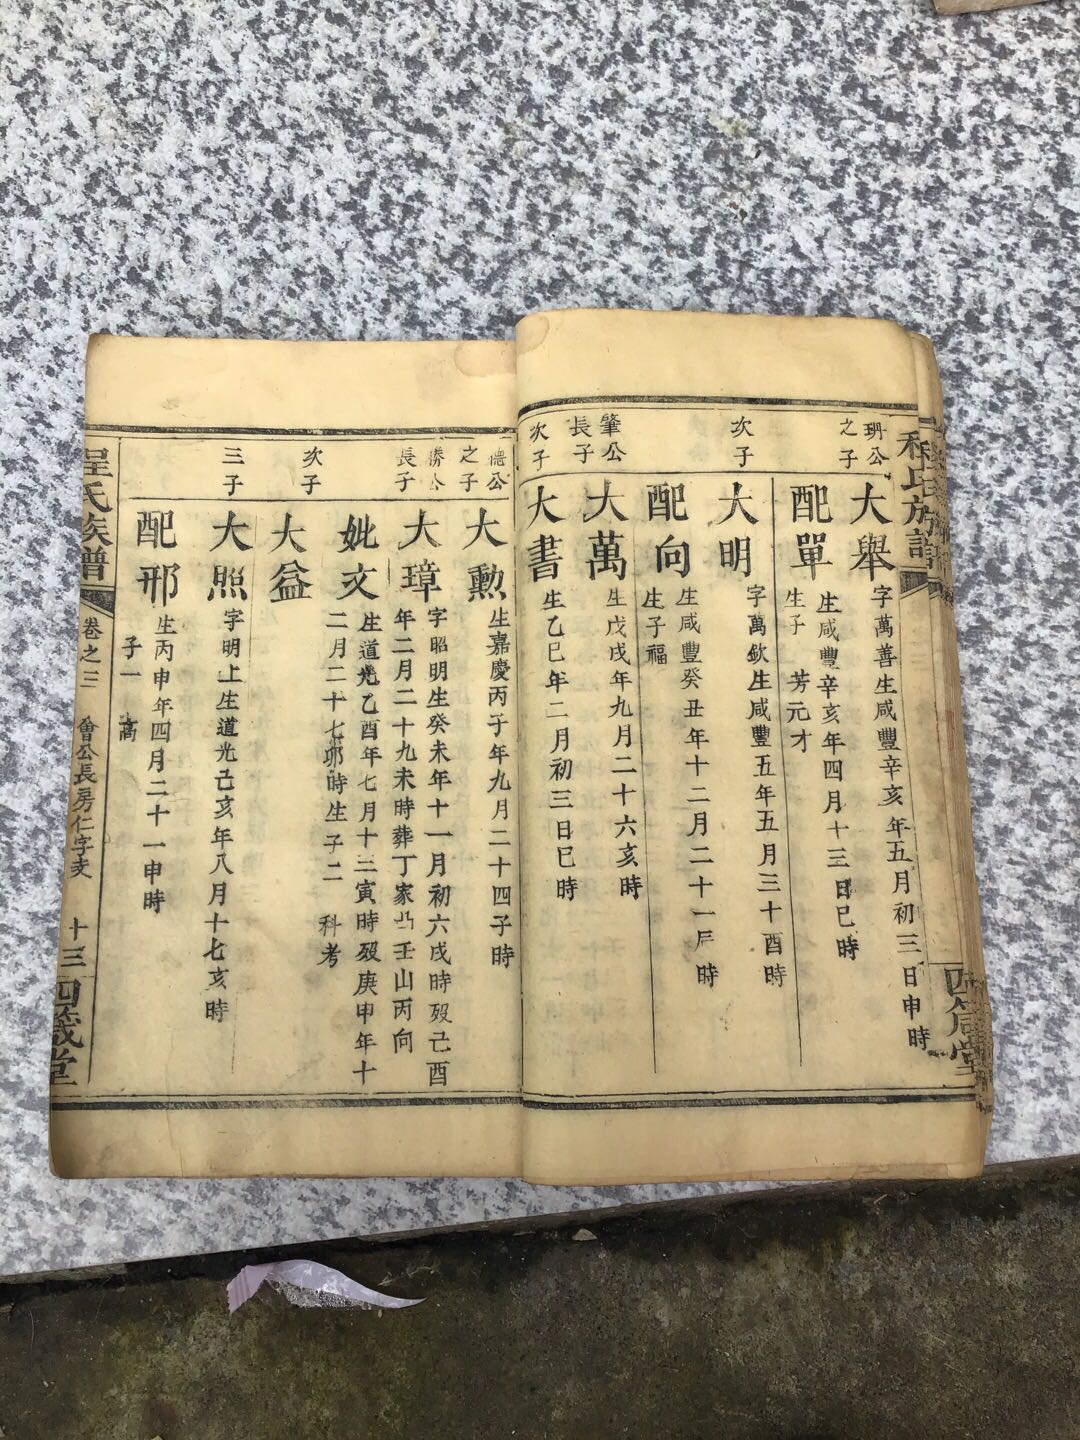 程氏族譜
四箴堂
玥公之子
大舉
字萬善生咸豐辛亥年五月初三日申時
配單
生咸豐辛亥年四月十三日巳時
生子 芳元才
次子
大明
字萬欽生咸豐五年五月三十酉時
配向
生咸豐癸丑年十二月二十一 時
生子福
肇公長子
大萬
生戊戌年九月二十六亥時
次子
大書
生乙巳年二月初三日巳時
德公之子
大勳
生嘉慶丙子年九月二十四子時
勝公長子
大璋
字昭明生癸未年十一月初六戌時歿己酉
年二月二十九未時葬丁家凸壬山丙向
妣文
生道光乙酉年七月十三寅時歿庚申年十
二月二十七卯時生子二 科考
次子
大益
三子
大照
字明上生道光己亥年八月十七亥時
配邢
生丙申年四月二十一申時
子一 高
程氏族譜
卷之三
會公長房仁字支
十三
四箴堂